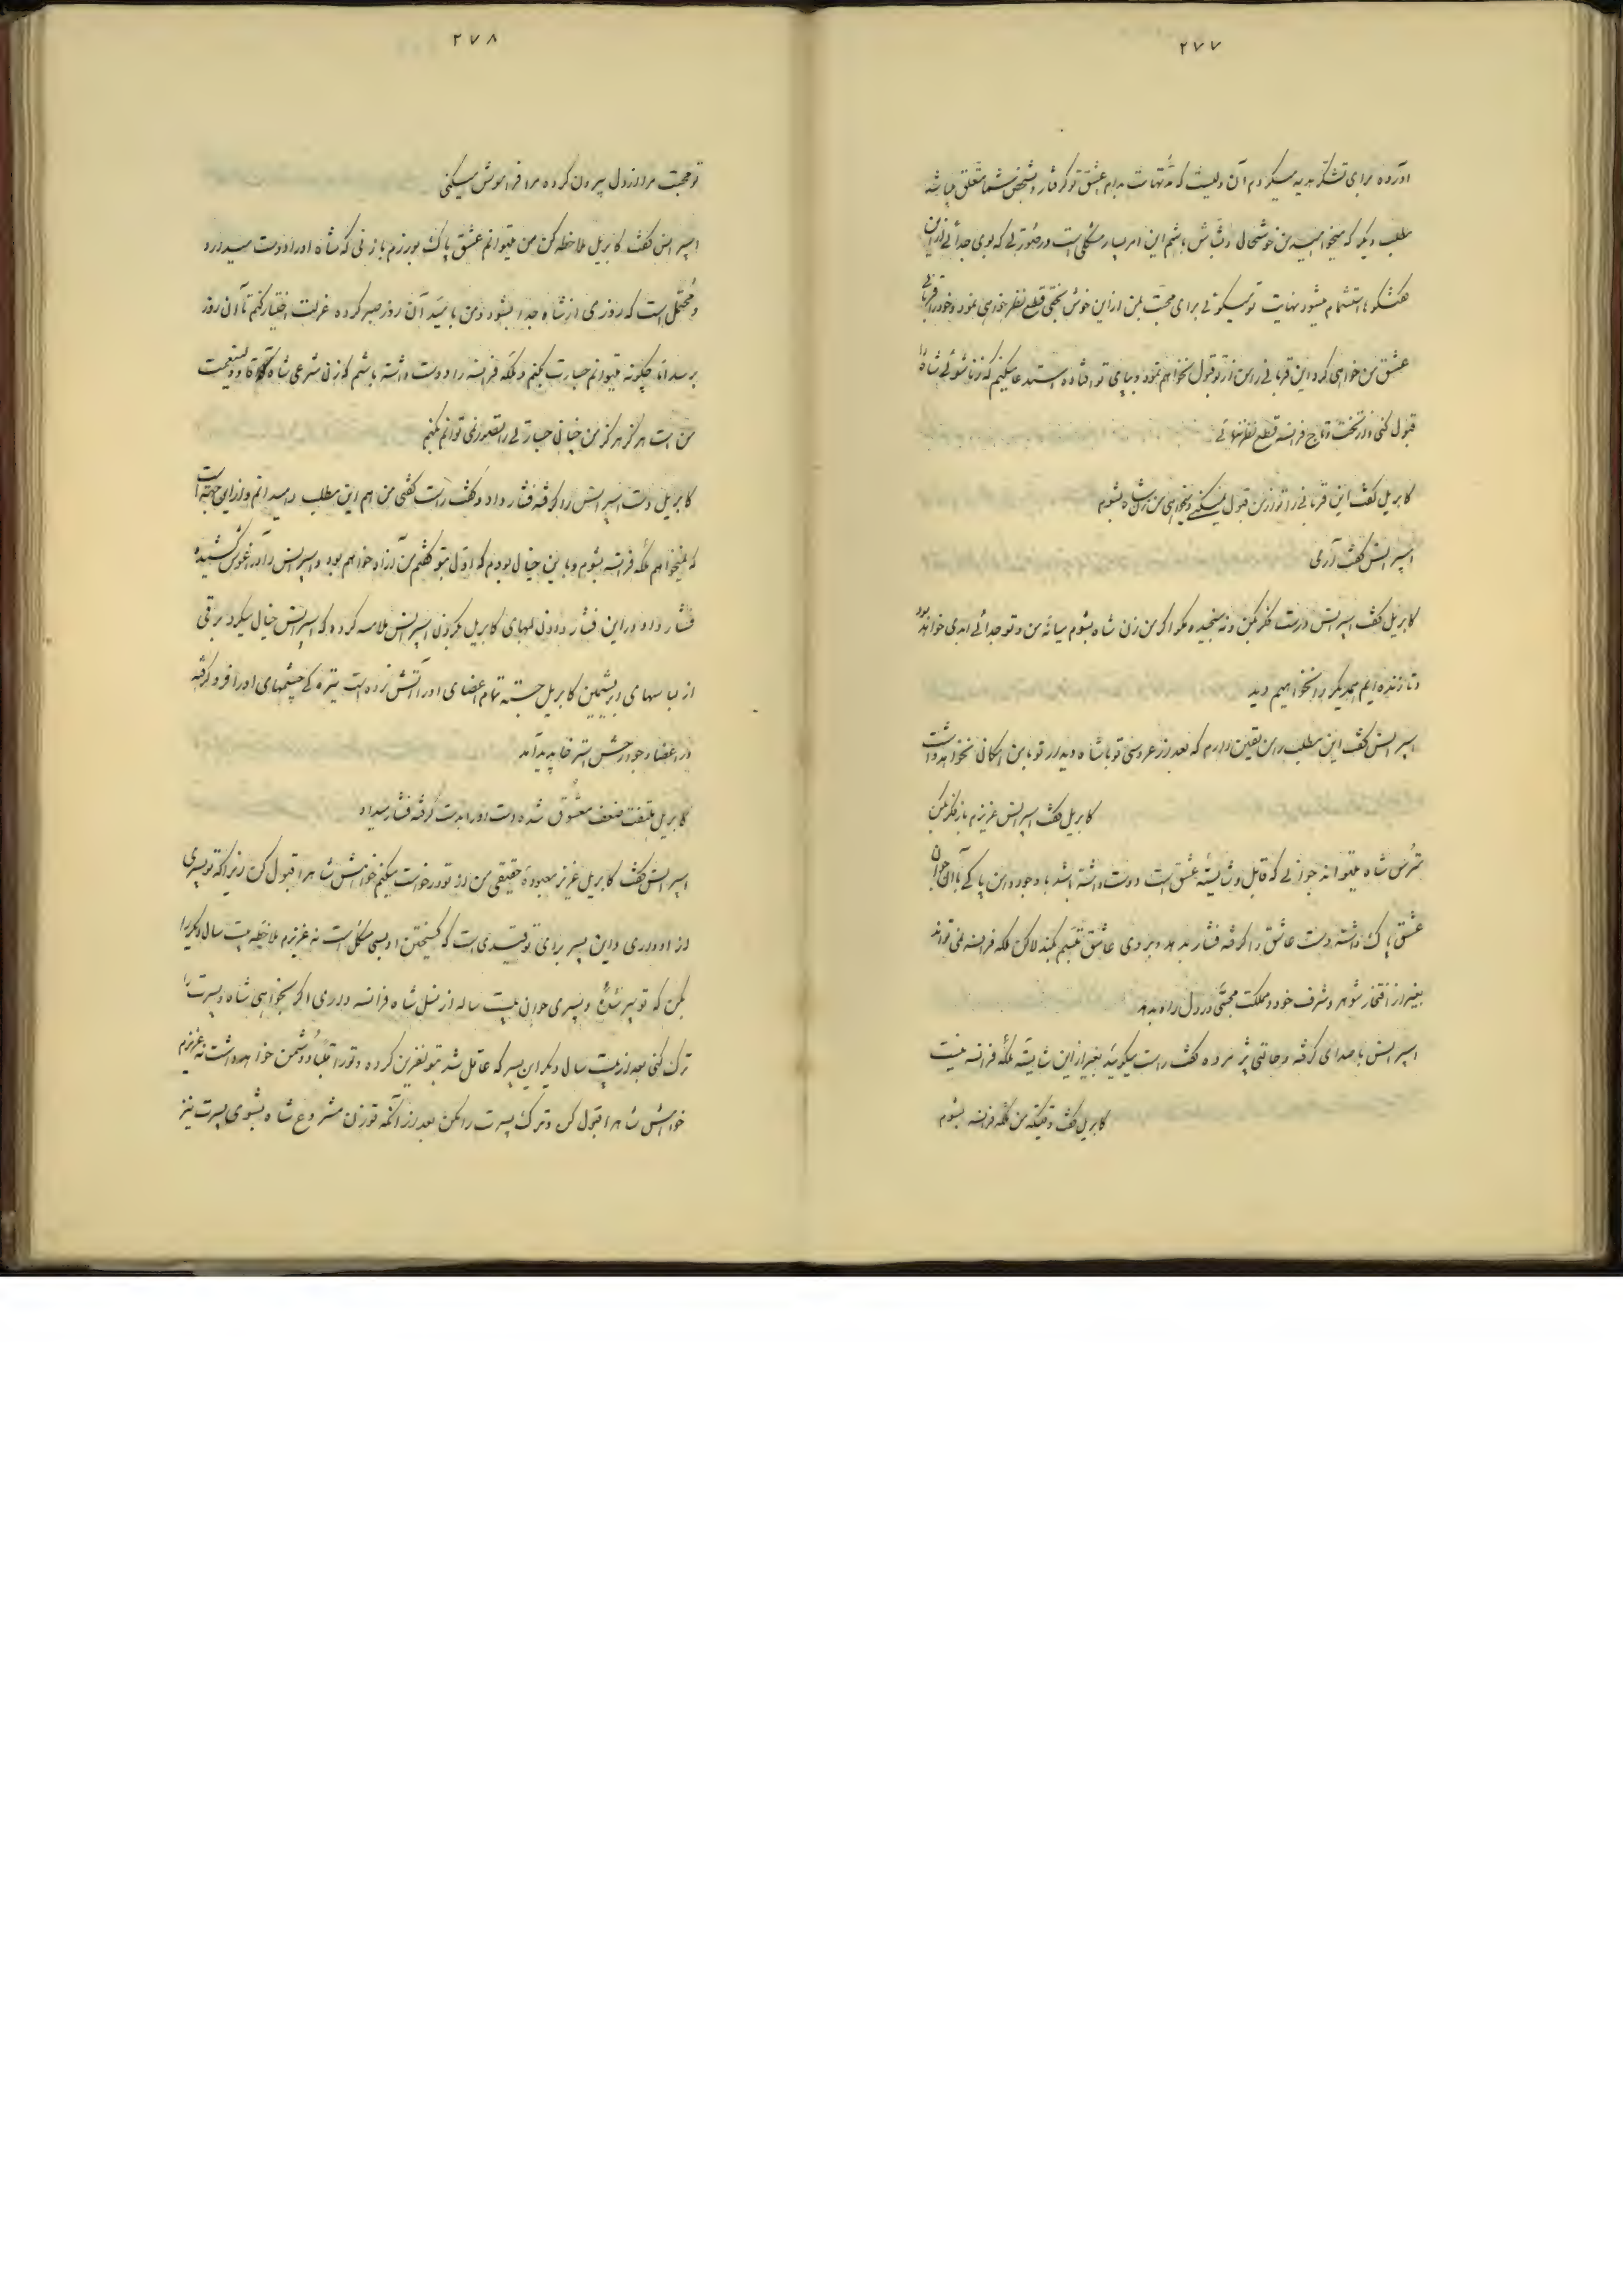 ۲۷۷
آورده برای تشکر هدیه میکردم آن دلیست که مدتهاست بدام عشق تو گرفتار و بشخص شما متعلق میباشد
مطلب دیگر که میخواهید من خوشحال و بشاش باشم این امر بسیار مشکلی است در صورتی که بوی جدائی از این
گفتگو ها استشمام میشود نهایت تو میگوئی برای محبت بمن از این خوش بختی قطع نظر خواهی نمود و خود را قربانی
عشق من خواهی کرد این قربانی را من از تو قبول نخواهم نمود و بپای تو افتاده استدعا میکنم که زناشوئی شاه را
قبول کنی و از تخت و تاج فرانسه قطع نظر ننمائی
کابریل گفت این قربانی را تو از من قبول نمیکنی و میخواهی من زن شاه بشوم
اسپرانس گفت آری
کابریل گفت اسپرانس درست فکر بکن و نه سنجیده مگو اگر من زن شاه بشوم میانه من و تو جدائی ابدی خواهد بود
و تا زنده ایم همدیگر را نخواهیم دید
اسپرانس گفت این مطلب را من یقین دارم که بعد از عروسی تو با شاه دیدار تو با من امکانی نخواهد داشت
کابریل گفت اسپرانس عزیزم باز فکر بکن
مترس شاه میتواند جوانی که قابل و شایسته عشق است دوست داشته باشد با وجود این پاکی با آن جوان
عشق پاک داشته دست عاشق را گرفته فشار بدهد و بروی عاشق تبسم بکند لاکن ملکه فرانسه نمی تواند
بغیر از افتخار شوهر و شرف خود و مملکت محبتی در دل راه بدهد
اسپرانس با صدای گرفته و حالتی پژمرده گفت راست میگوئید بغیر از این شایسته ملکه فرانسه نیست
کابریل گفت وقتیکه من ملکه فرانسه بشوم
۲۷۸
تو محبت مرا از دل بیرون کرده مرا فراموش میکنی
اسپرانس گفت کابریل ملاحظه کن من میتوانم عشق پاک بورزم با زنی که شاه او را دوست میدارد
و محتمل است که روزی از شاه جدا بشود و من بامید آن روز صبر کرده عزلت اختیار کنم تا آن روز
برسد اما چگونه میتوانم جسارت بکنم و ملکه فرانسه را دوست داشته باشم که زن شرعی شاه آقا و ولینعمت
من است هرگز هرگز من چنانی جسارتی را تصور نمی توانم بکنم
کابریل دست اسپرانس را گرفته فشار داد و گفت راست گفتی من هم این مطلب را میدانم و از این جهة است
که نمیخواهم ملکه فرانسه بشوم و باین خیال بودم که اول بتو گفتم من آزاد خواهم بود و اسپرانس را در آغوش کشیده
فشار داد در این فشار دادن لبهای کابریل بگردن اسپرانس ملامسه کرده که اسپرانس خیال میکرد برقی
از لباسهای ابریشمین کابریل جسته تمام اعضای او را آتش زده است تیره گی چشمهای او را فرو گرفته
در اعضاء و جوارحش استرخا پدید آمد
کابریل ملتفت ضعف معشوق شده دست او را بدست گرفته فشار میداد
اسپرانس گفت کابریل عزیز معبوده حقیقی من از تو درخواست میکنم خواهش شاه را قبول کن زیرا که تو پسری
از او داری و این پسر برای تو قیدی است که گسیختن او بسی مشکل است نه عزیزم ملاحظه بیست سال دیگر را
بکن که تو پیر شده و پسری جوان بیست ساله از نسل شاه فرانسه داری اگر بخواهی شاه و پسرت را
ترک کنی بعد از بیست سال دیگر این پسر که عاقل شد بتو نفرین کرده و تو را قلباً دشمن خواهد داشت نه عزیزم
خواهش شاه را قبول کن و ترک پسرت را مکن بعد از آنکه تو زن مشروع شاه بشوی پسرت نیز